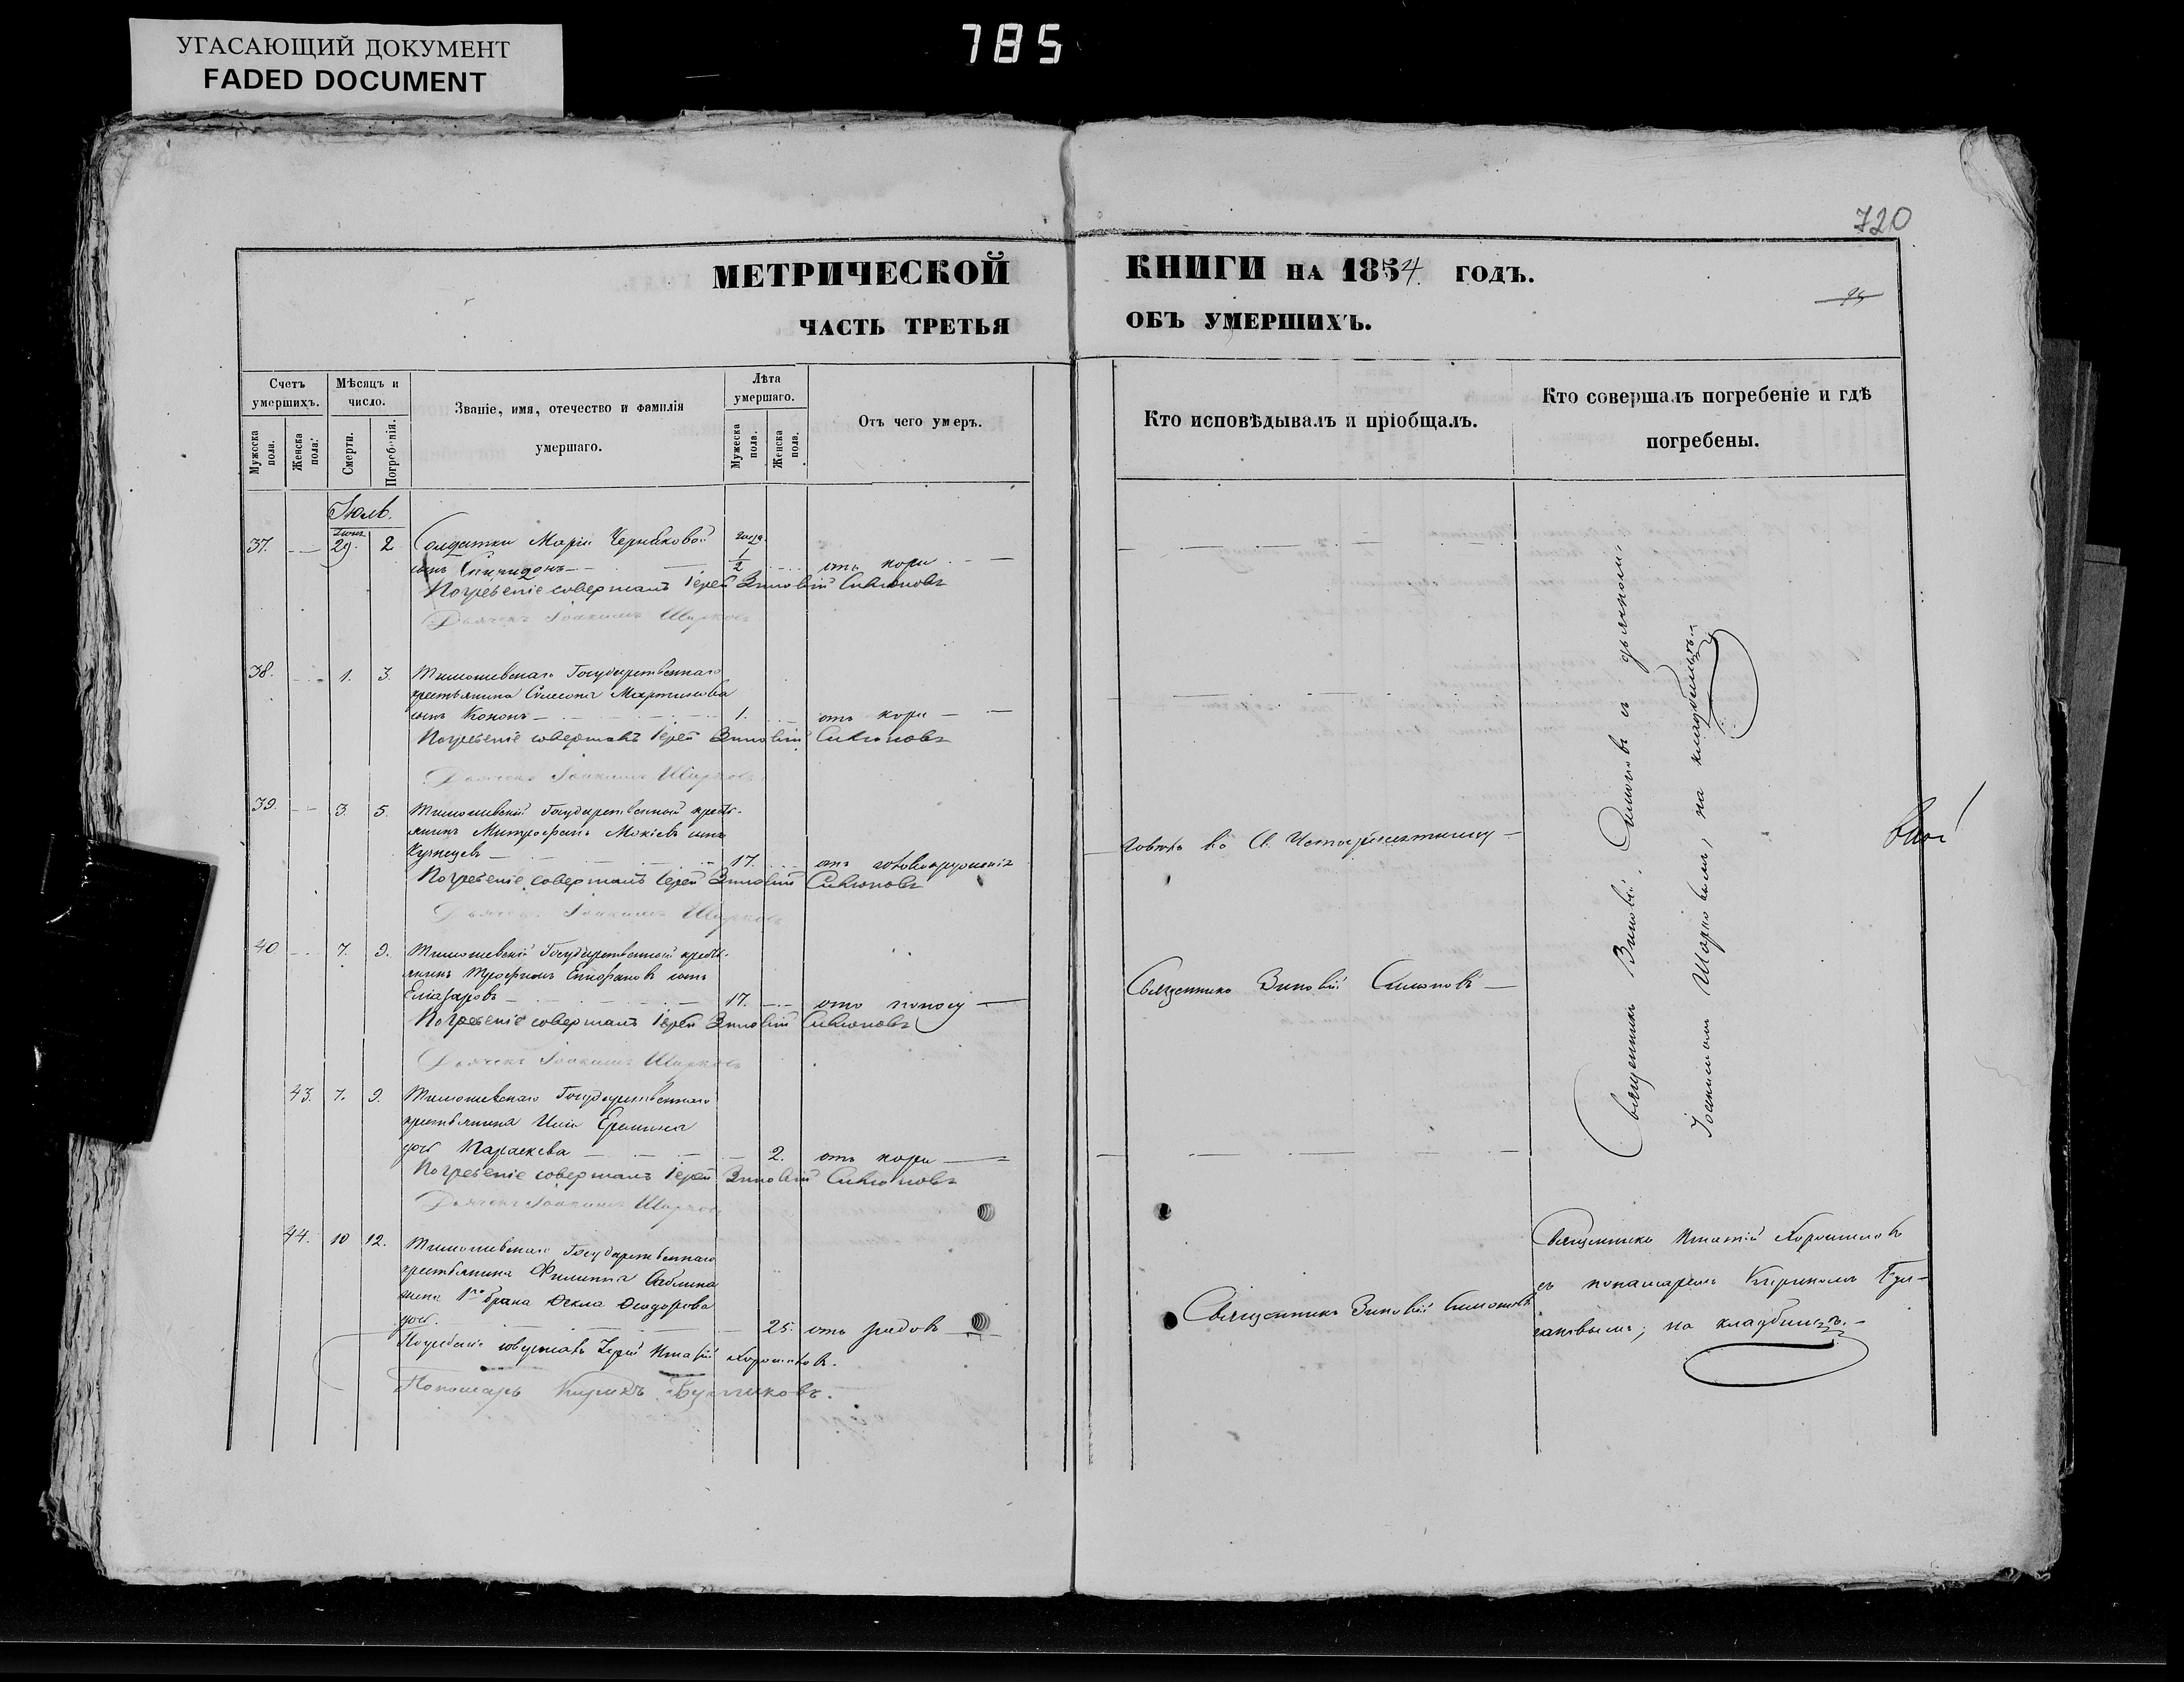 УГАСАЮЩИЙ ДОКУМЕНТ
FADED DOCUMENT
785
720
МЕТРИЧЕСКОЙ
ЧАСТЬ ТРЕТЬЯ
Счетъ умершихъ.
Мужеска пола.
Женска пола.
Мѣсяцъ и число.
Смерти.
Погребенія.
Званіе, имя, отечество и фамилія
умершаго.
Лѣта умершаго.
Мужеска пола.
Женска пола.
Отъ чего умеръ.
Іюль.
37. 29. 2. Солдатки Маріи Черняковой года
сынъ Спиридонъ 1/2 отъ кори
Погребеніе совершалъ Іерей Зиновій Симоновъ
Дьячекъ Іоакимъ Шарковъ
38. 1. 3. Тимошевскаго Государственнаго
крестьянина Симеона Мартинова
сынъ Кононъ 1. отъ кори
Погребеніе совершалъ Іерей Зиновій Симоновъ
Дьячекъ Іоакимъ Шарковъ
39. 3. 5. Тимошевскій Государственный кресть-
янинъ Митрофанъ Мокіевъ сынъ
Кузнецовъ 17. отъ
Погребеніе совершалъ Іерей Зиновій Симоновъ
Дьячекъ Іоакимъ Шарковъ
40 7. 9. Тимошевскій Государственной кресть-
янинъ Трофимъ Епифановъ сынъ
Елиазаровъ 17. отъ поносу
Погребеніе совершалъ Іерей Зиновій Симоновъ
Дьячекъ Іоакимъ Шарковъ
43. 7. 9. Тимошевскаго Государственнаго
крестьянина Иліи Еремина
дочь Параскева 2. отъ кори
Погребеніе совершалъ Іерей Зиновій Симоновъ
Дьячекъ Іоакимъ Шарковъ
44. 10 12. Тимошевскаго Государственнаго
крестьянина Филиппа Саблина
жена 1го брака Ѳекла Ѳеодорова
дочь. 25. отъ родовъ
Погребеніе совершалъ Іерей Игнатій Хорошиловъ.
Пономарь Кирикъ
КНИГИ НА 1854 ГОДЪ.
ОБЪ УМЕРШИХЪ.
Кто исповѣдывалъ и пріобщалъ.
Кто совершалъ погребеніе и гдѣ
погребены.
говѣлъ во Св. Четыредесятницу
Священникъ Зиновій Симоновъ
Священникъ Зиновій Симоновъ
Священникъ Зиновій Симоновъ съ дьячкомъ
Іоакимомъ Шарковымъ, на кладбищѣ
Священникъ Игнатій Хорошиловъ
съ пономаремъ Кирикомъ
на кладбищѣ.